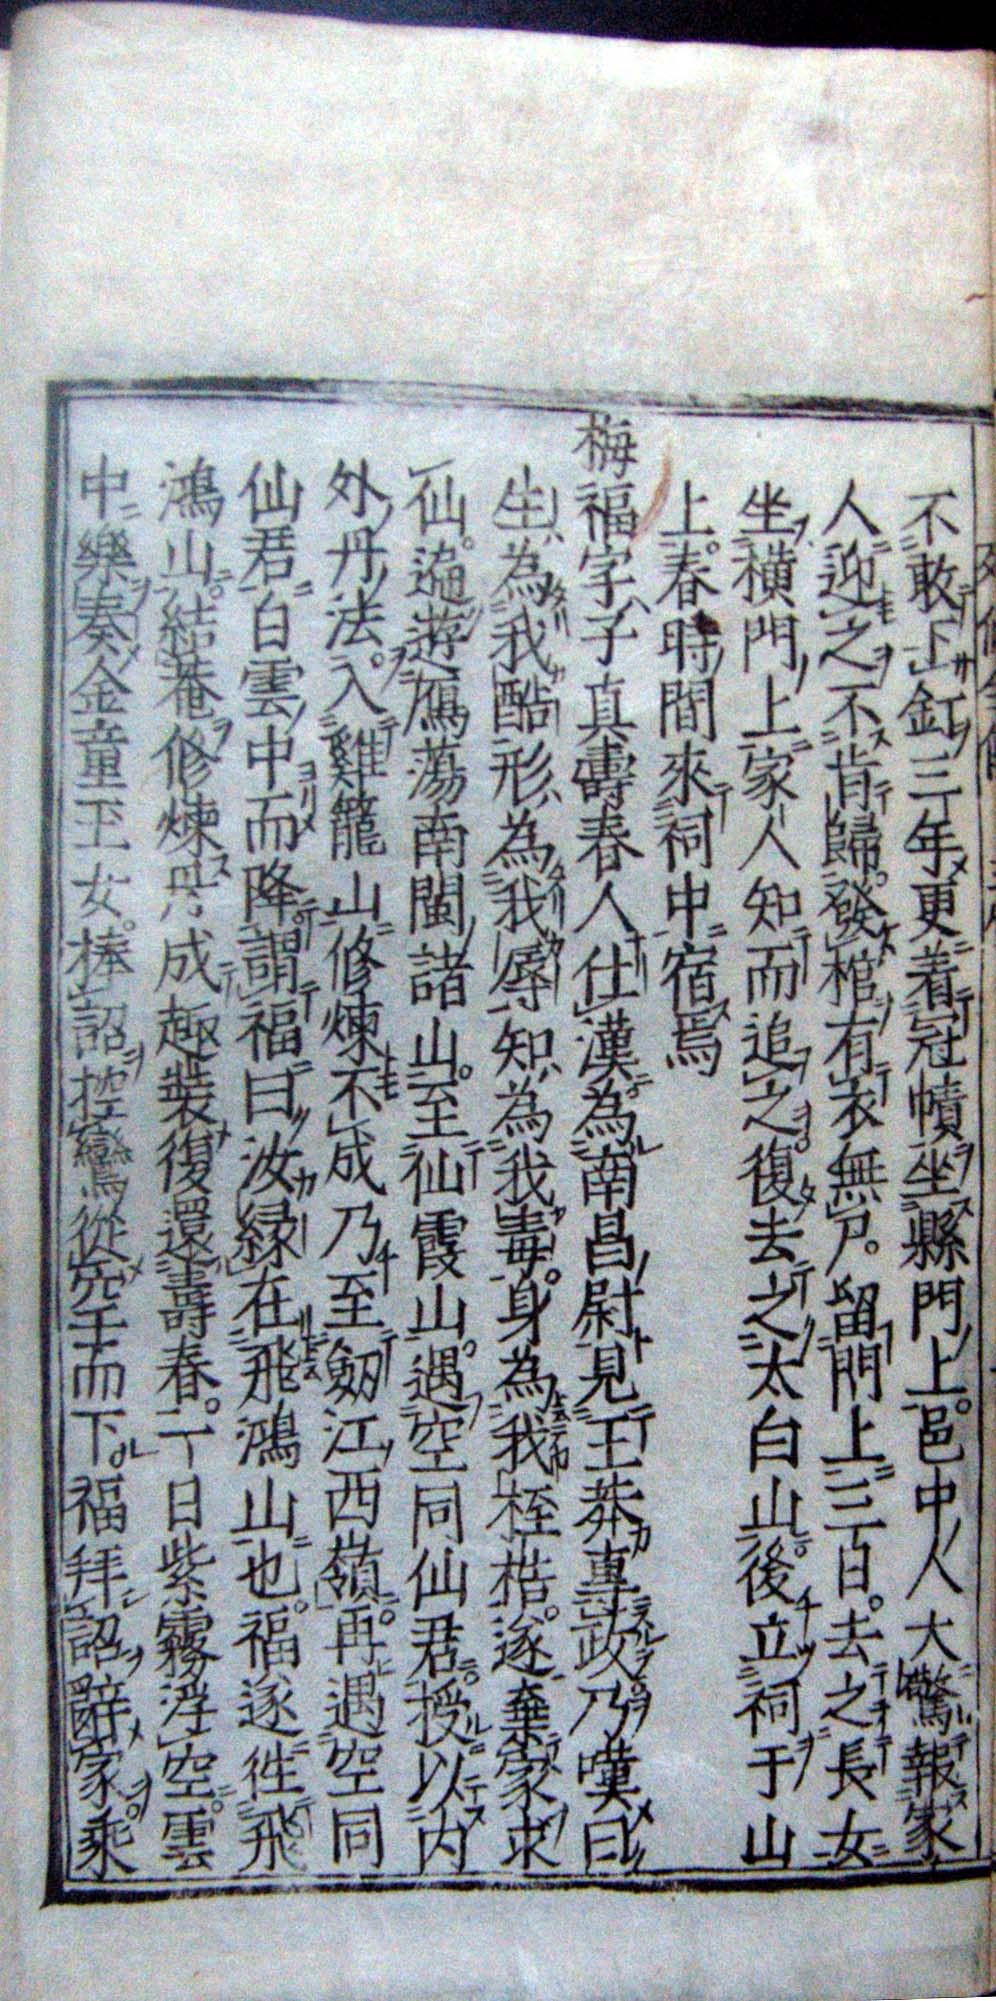 不敢下釘三年更着冠幘坐縣門上邑中人大驚報家
人迎之不肯歸發棺有衣無尸留門上三百日去之長女
坐横門上家人知而追之復去之太白山後立祠于山
上春時間來祠中宿焉
梅福字子真壽春人仕漢為南昌尉見王莽專政乃嘆曰
生為我酷形為我辱知為我毒身為我桎梏遂棄家求
仙遍遊鴈蕩南閩諸山至仙霞山遇空同仙君授以内
外丹法入雞籠山修煉不成乃至劔江西嶺再遇空同
仙君白雲中而降謂福曰汝縁在飛鴻山也福遂徃飛
鴻山結菴修煉丹成趣裝復還壽春一日紫霧浮空雲
中樂奏金童玉女捧詔控鸞從空而下福拜詔辭家乘